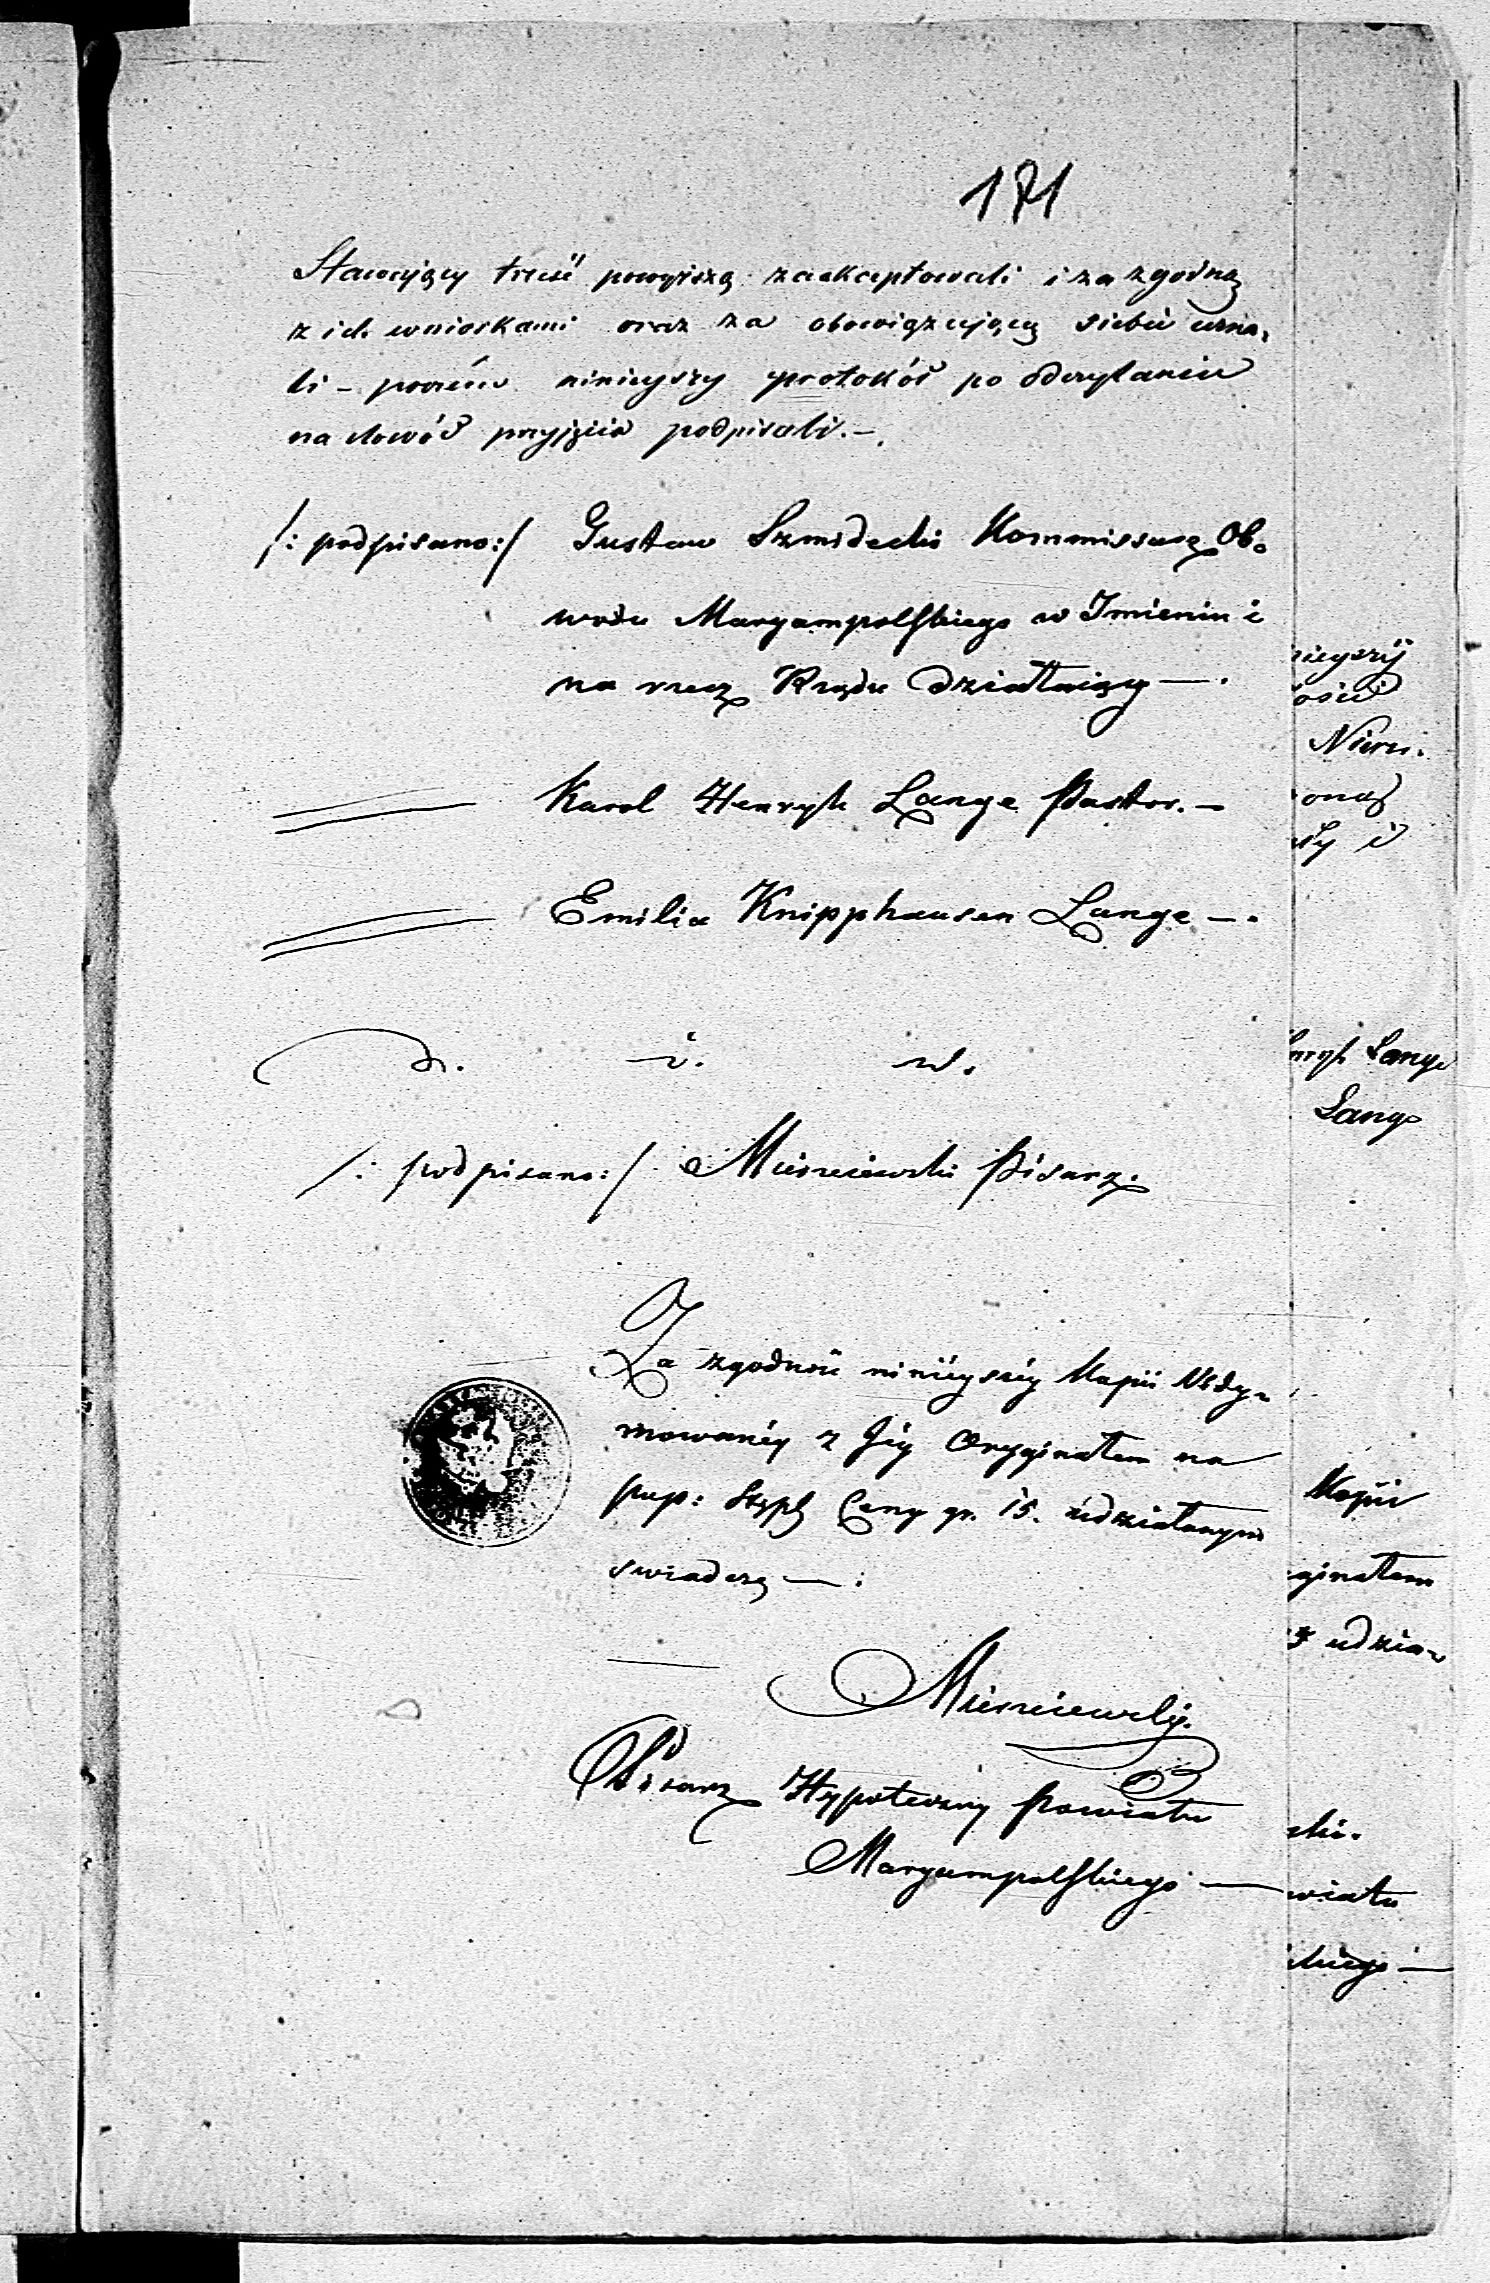 171
Stawający treść powyższą zaakceptowali i za zgodną
z ich wnioskami oraz za obowiązującą siebie uzna-
li – poczém ninieyszy protokół po odczytaniu
na dowód przyjęcia podpisali. –
/: podpisano :/ Gustaw Szmidecki Kommissarz Ob-
wodu Maryampolskiego w Imieniu i
na rzecz Rządu działaiący – .
Karol Henryk Lange Pastor. –
Emilia Knipphausen Lange – .
d. i. w.
/: podpisano :/ Pisarz.
Za zgodność ninieyszéy Kopii Widy-
mowanéy z Jéy Oryginałem na
pap: Stępl Ceny gr. 15. zdziałanym
swiadczę – :
Pisarz Hypoteczny Powiatu
Maryampolskiego –
nieyszy
ości
onaż
ały i
nryk Lange
Lange
Kopii
yginałem
udzia-
ski.
wiatu
skiego –